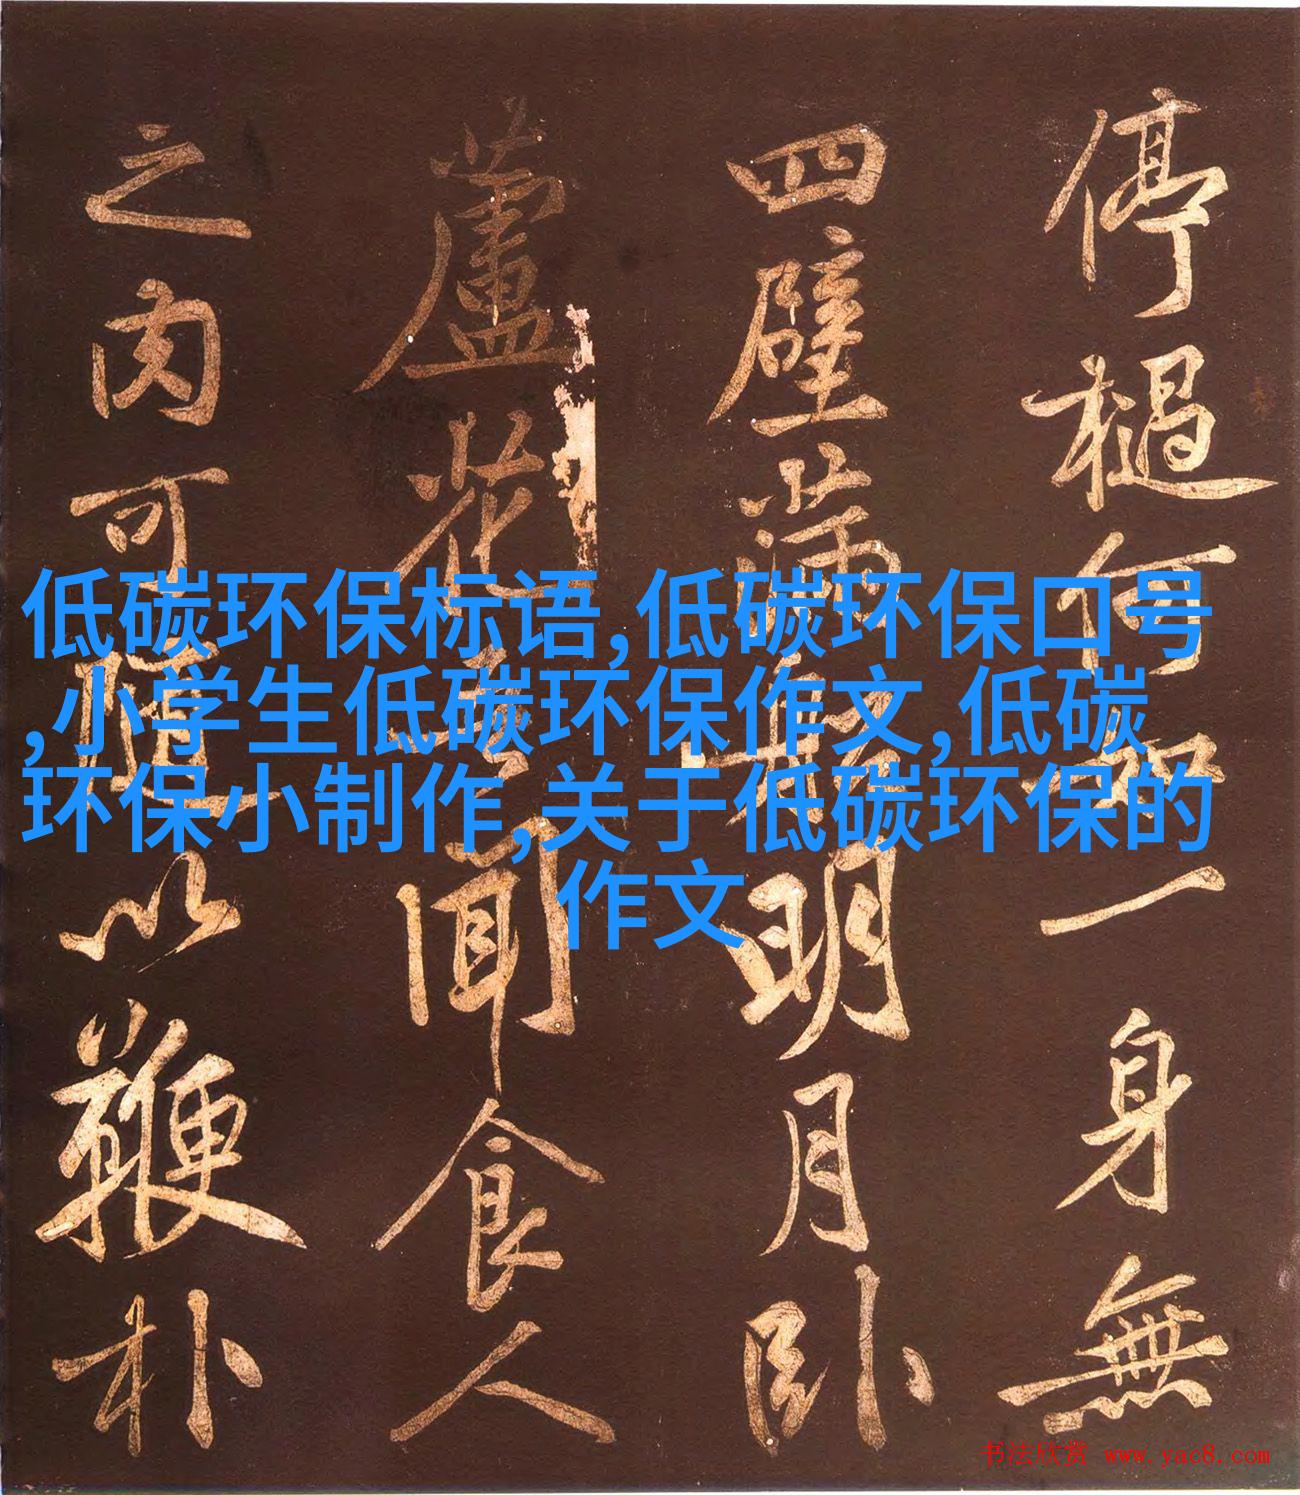 停檛何無一身無
四壁滿船明月卧
蘆花
聞食人
之肉可隨以鞭朴
低碳环保标语,低碳环保口号
,小学生低碳环保作文,低碳
环保小制作,关于低碳环保的
作文
书法欣赏 www.yac8.com